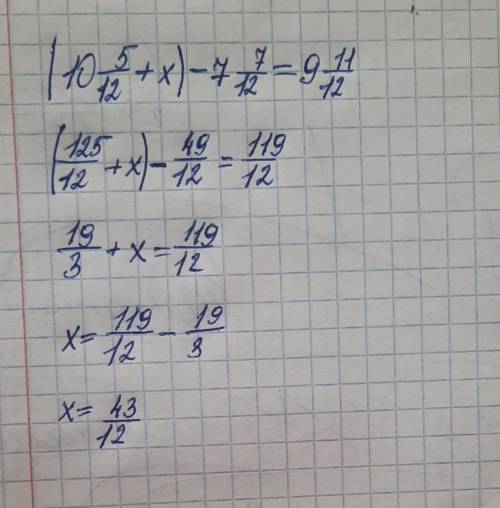 (10 5/12 + x) - 7 7/12 = 9 11/12
(125/12 + x) - 49/12 = 119/12
19/3 + x = 119/12
x = 119/12 - 19/3
x = 43/12